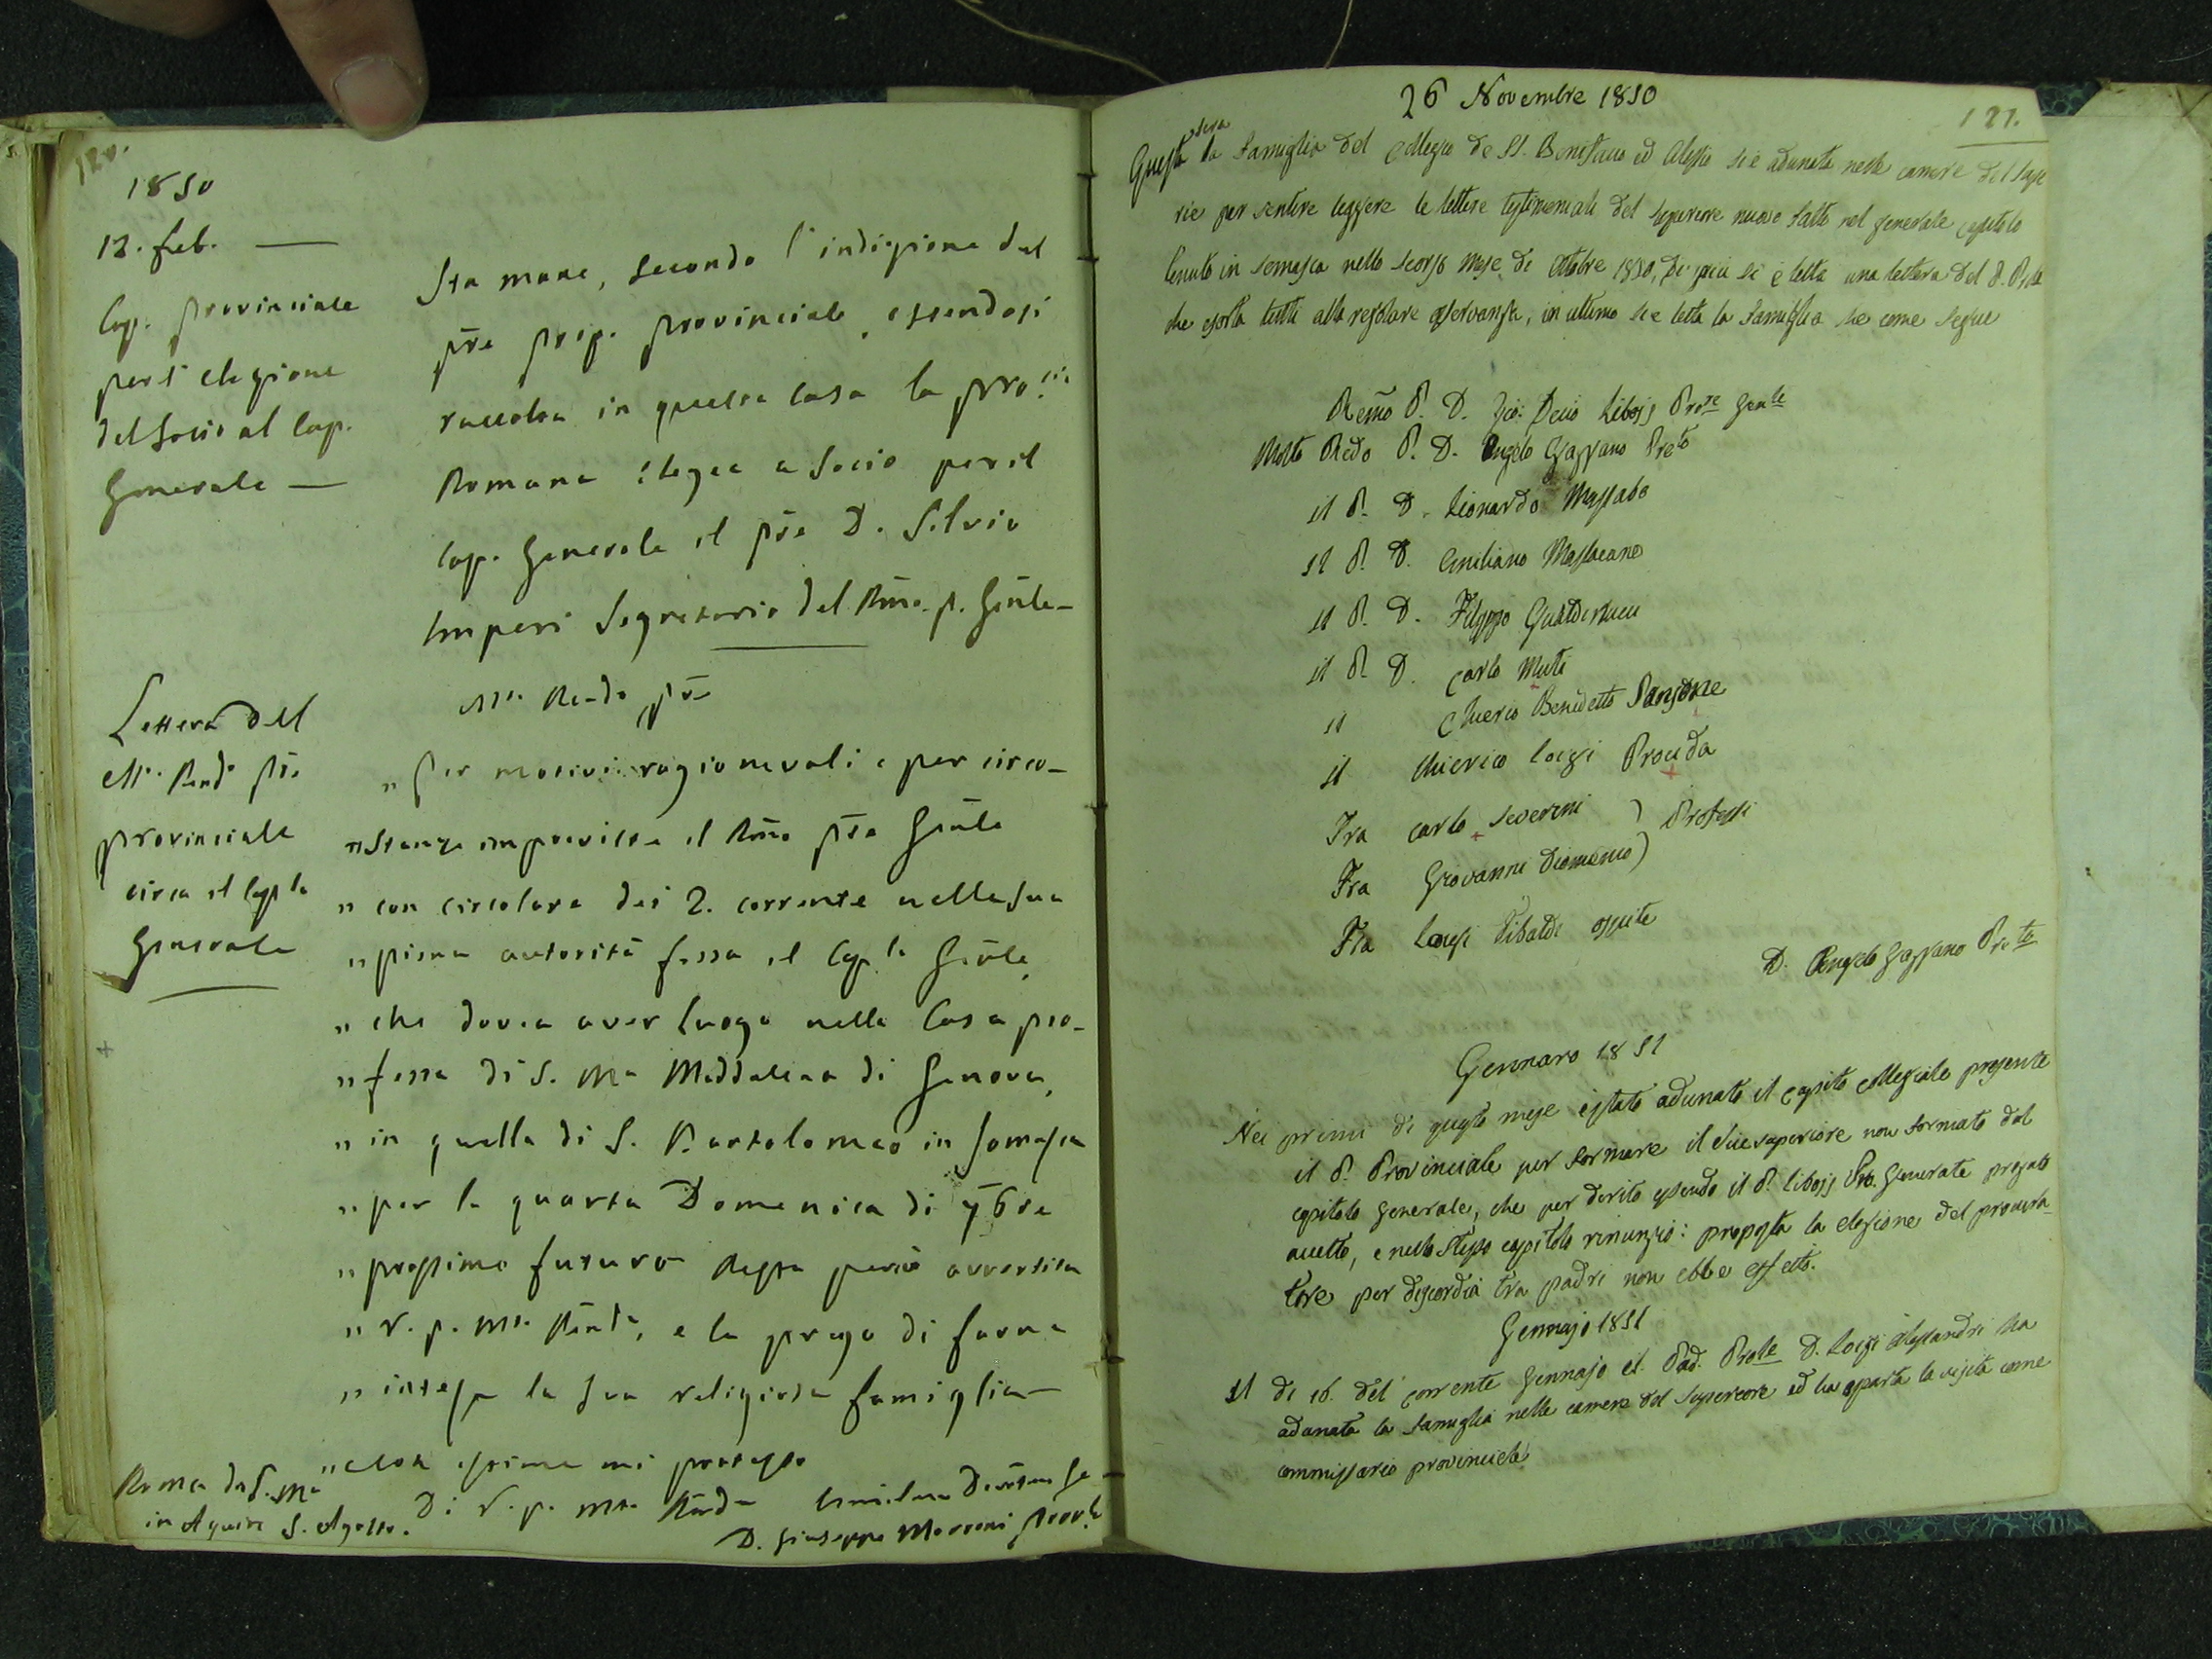 120.
1850
12. feb. —
Cap. provinciale
per l'elezione
del Socio al Cap.
Generale —
Sta mane, secondo l'indizione del
pre prep. provinciale, essendosi
raccolta in questa Casa la prov.cia
Romana elesse a Socio per il
Cap. Generale il pre D. Silvio
Imperi Segretario del Rmo. p. Gnle —
Lettera del
M.o Rendo pre
provinciale
circa il Cap.lo
Generale
M.o Rendo pre
" Per motivi ragionevoli e per circo-
" Stanze impreviste il Rmo pre Gnle
" con circolare dei 2. corrente nella sua
" piena autorità fissa il Cap.lo Gnle,
" che dovea aver luogo nella Casa pro-
" fessa di S. Ma Maddalena di Genova,
" in quella di S. Bartolomeo in Somasca
" per la quarta Domenica di 7bre
" prossimo futuro Resta perciò avvertita
" V. p. Mto Rnda, e la prego di farne
" intesa la sua religiosa famiglia —
" Con stima mi protesto
Roma da S. Ma
in Aquiro 5. Agosto.
Di V. p. mto Rnda
D. Giuseppe Marconi Prov.le
26 Novembre 1850
121.
Questa sera la Famiglia del Collegio de SS. Bonifacio ed Alessio si è adunata nelle camere del Supe
rie per sentire leggere le lettere testimoniali del superiore nuovo fatto nel generale capitolo
tenuto in Somasca nello scorso Mese di Ottobre 1850, Di più si è letta una lettera del P.
che esorta tutti alla regolare osservanza, in ultimo si è letta la Famiglia che come segue
Remo P. D. Gio: Decio Libois Prore Gnle
Molto Redo P. D. Angelo Gazzano Preto
il P. D. Lionardo Massabò
il P. D. Emiliano
il P. D. Filippo Gualterucci
il P. D. Carlo Muti
il Chierico Benedetto Sansone
il Chierico Luigi Procida
Fra Carlo Severini ) Professi
Fra Giovanni Diomanio )
Fra Luigi Tibaldi ospite
D. Angelo Gazzano Preto
Gennaro 1851
Nei primi di questo mese è stato adunato il Capito collegiale presente
il P. Provinciale per formare il vicesuperiore non formato dal
capitolo generale, che per dirito essendo il P. Libois Pro. Generale pregato
accettò, e nello stesso capitolo rinunziò: proposta la elezione del procura-
tore per discordia tra padri non ebbe effetto.
Gennajo 1851
Il dì 16. del corrente Gennajo il Pad. Prole D. Luigi Alessandri ha
adunata la famiglia nelle camere del Superiore ed ha aparta la visita come
commissario provinciale